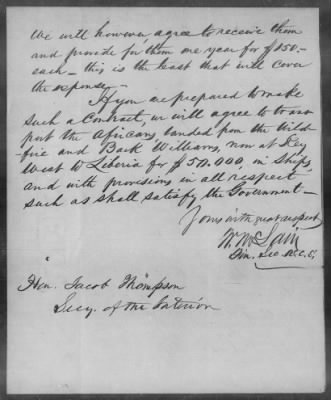 We will however agree to receive them
and provide for them one year for $150 –
each – this is the least that will cover
the expense –
If you are prepared to make
such a Contract, we will agree to trans
port the Africans landed from the Wild-
fire and Bark Williams, now at Key
West to Liberia for $50.000, in Ships
and with provisions in all respect
such as shall satisfy the Government –
Yours with great respect
W. McLain
Fin. Sec. A.C.S.
Hon. Jacob Thompson
Secy. of the Interior